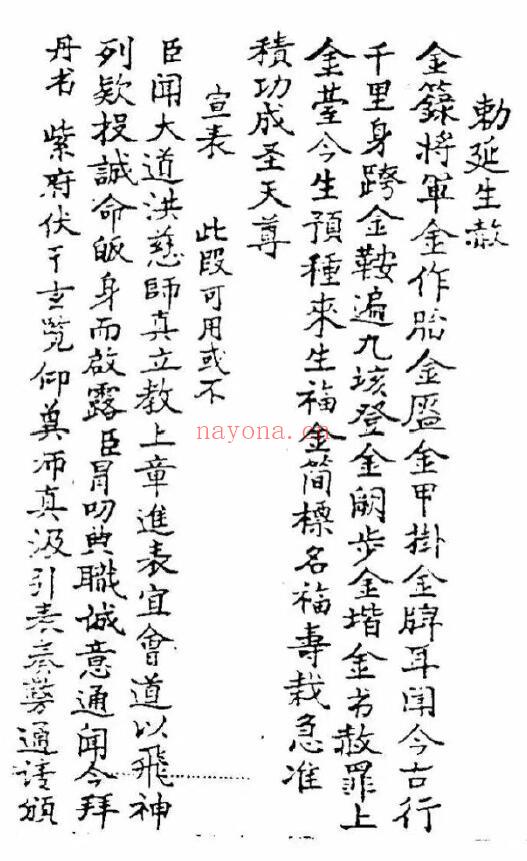 勅延生赦
金籙将軍金作胎金盔金甲掛金牌耳聞今古行
千里身跨金鞍遍九垓登金闕步金堦金书赦罪上
金臺今生預種來生福金简標名福壽栽急准
積功成圣天尊
宣表 此段可用或不
臣聞大道洪慈師真立教上章進表宜會道以飛神
列欵投誠命皈身而啟露臣冒叨典職誠意通聞今拜
丹书 紫府伏于玄覽仰冀师真汲引表通請頒
nayona.cn